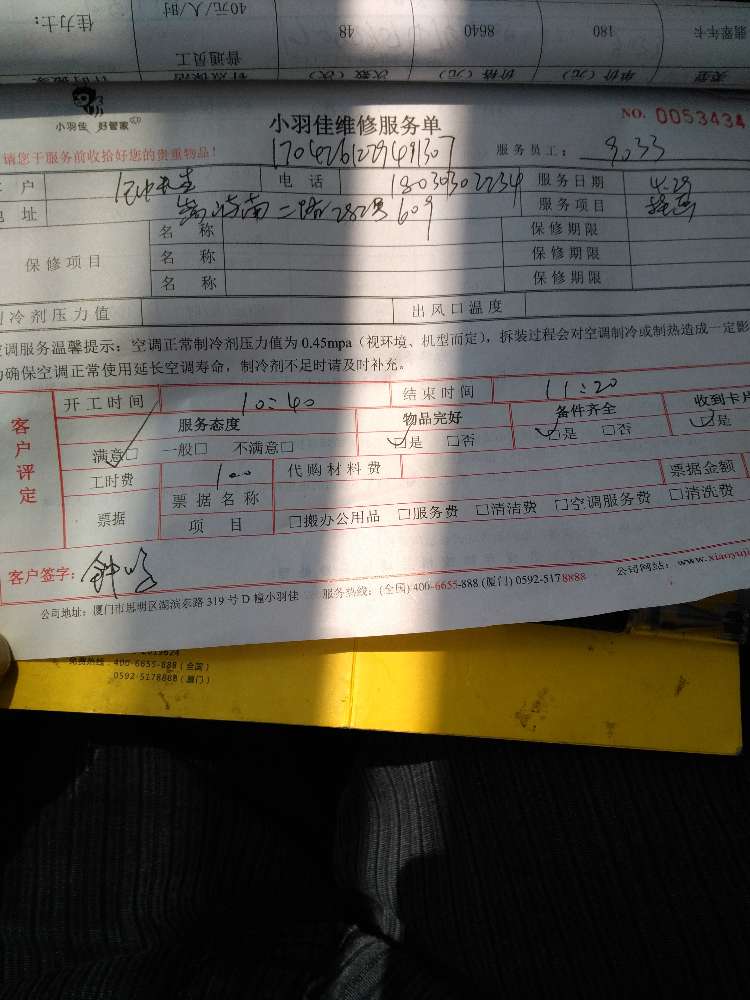 佳力士:
40元/人/时
48
8640
180
翡翠年卡
普通员工
次数(次)
价格(元)
单价(元)
类型
小羽佳 好管家
小羽佳维修服务单
NO. 0053434
请您于服务前收拾好您的贵重物品!
服务员工: 9033
户
电 话 18030302234
服务日期 4.29
址
二路282号609
服务项目
保修项目
名 称
保修期限
名 称
保修期限
名 称
保修期限
冷剂压力值
出风口温度
调服务温馨提示:空调正常制冷剂压力值为 0.45mpa(视环境、机型而定),拆装过程会对空调制冷或制热造成一定影
确保空调正常使用延长空调寿命,制冷剂不足时请及时补充。
客户评定
开工时间 10:40
结束时间 11:20
服务态度
物品完好
备件齐全
收到卡片
满意□ 一般□ 不满意□
☑是 □否
☑是 □否
☑是
工时费 100
代购材料费
票据
票据名称
票据金额
项 目
□搬办公用品 □服务费 □清洁费 □空调服务费 □清洗费
客户签字:
公司地址:厦门市思明区湖滨东路 319 号 D 幢小羽佳
服务热线:(全国)400-6655-888 (厦门) 0592-5178888
公司网站:www.xiaoyuji
免费热线:400-6655-888(全国)
0592-5178888(厦门)